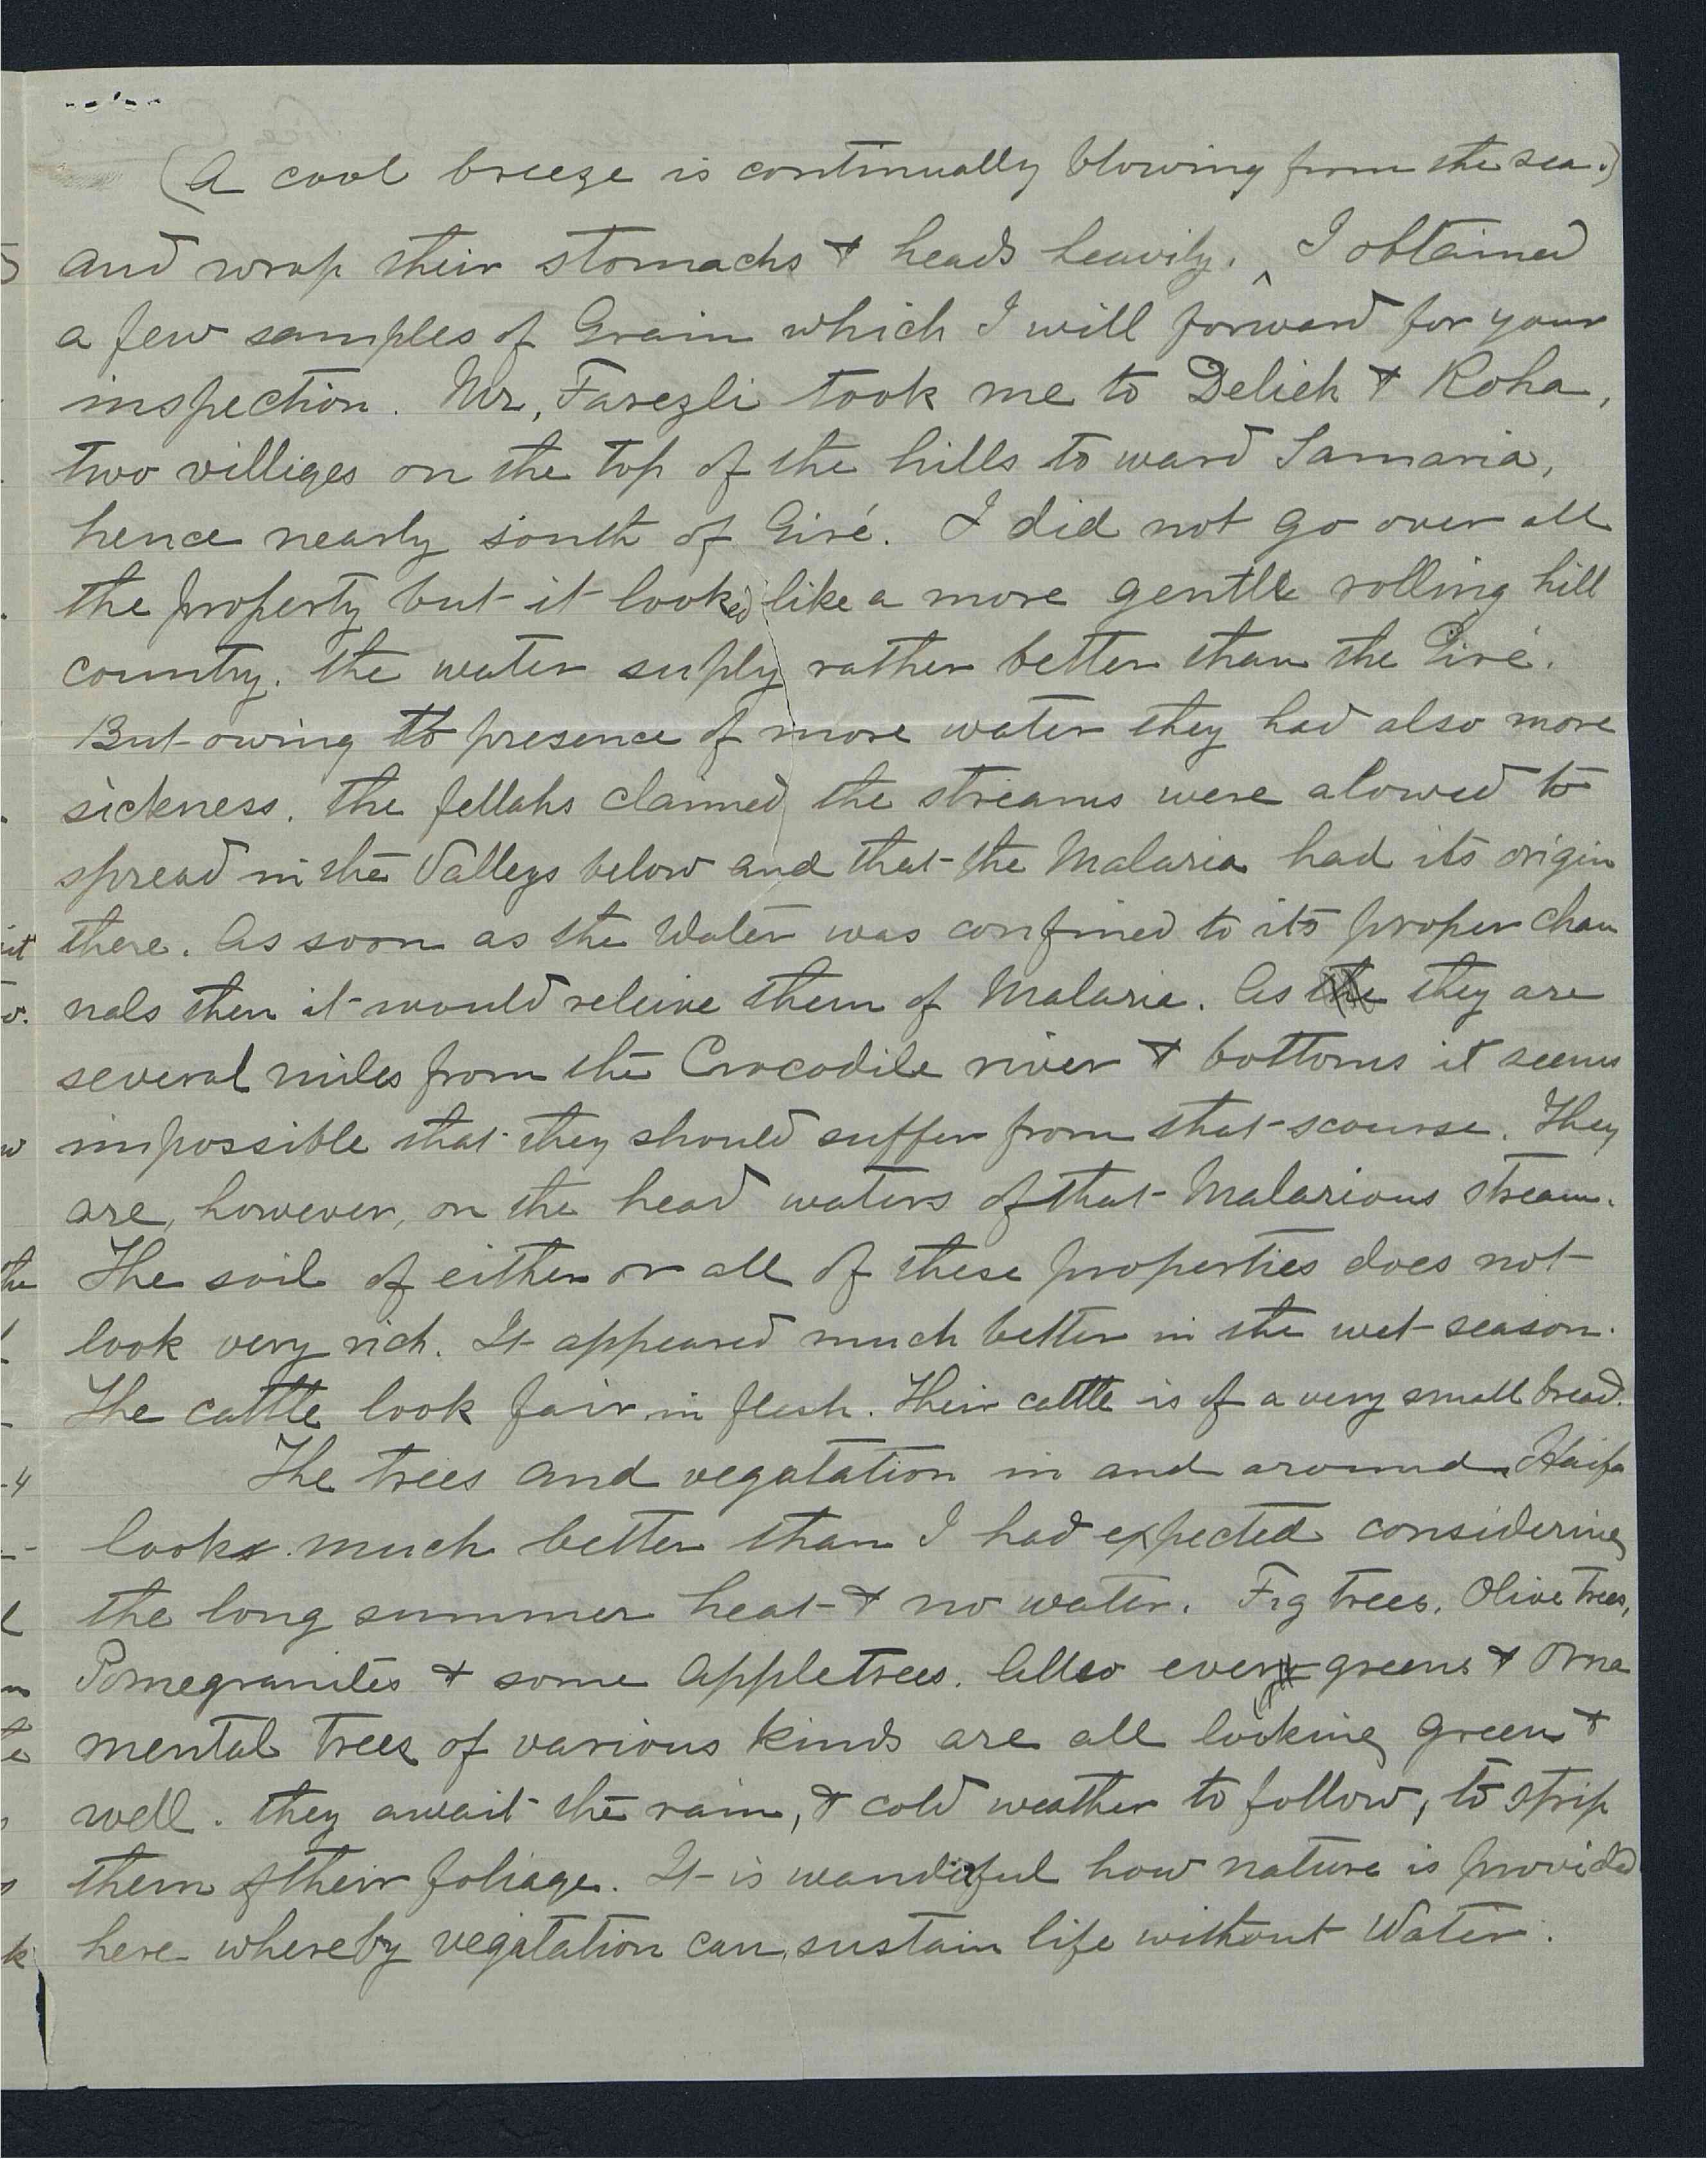 (A cool breeze is continually blowing from the sea.)
and wrap their stomachs & heads heavily. ^ I obtained
a few samples of Grain which I will forward for your
inspection. Mr. Farezli took me to Delieh & Roha,
two villiges on the top of the hills to ward Samaria,
hence nearly south of Giré. I did not go over all
the property but it looked like a more gentle rolling hill
country. the water suply rather better than the Giré.
But owing to presence of more water they had also more
sickness. the fellahs claimed the streams were alowed to
spread in the Valleys below and that the Malaria had its origin
there. As soon as the Water was confined to its proper chan
nals then it would releive them of Malaria. As the they are
several miles from the Crocodile river & bottoms it seems
impossible that they should suffer from that scourse. They
are, however, on the head waters of that Malarious stream.
The soil of either or all of these properties does not
look very rich. It appeared much better in the wet season.
The cattle look fair in flesh. Their cattle is of a very small bread.
The trees and vegatation in and around Haifa
looks much better than I had expected considering
the long summer heat & no water. Fig trees, Olive trees,
Pomegranites & some Appletrees. Allso ever greens & Orna
mental trees of various kinds are all looking green &
well. they await the rain, & cold weather to follow, to strip
them of their foliage. It is wanderful how nature is provided
here whereby vegatation can sustain life without Water.